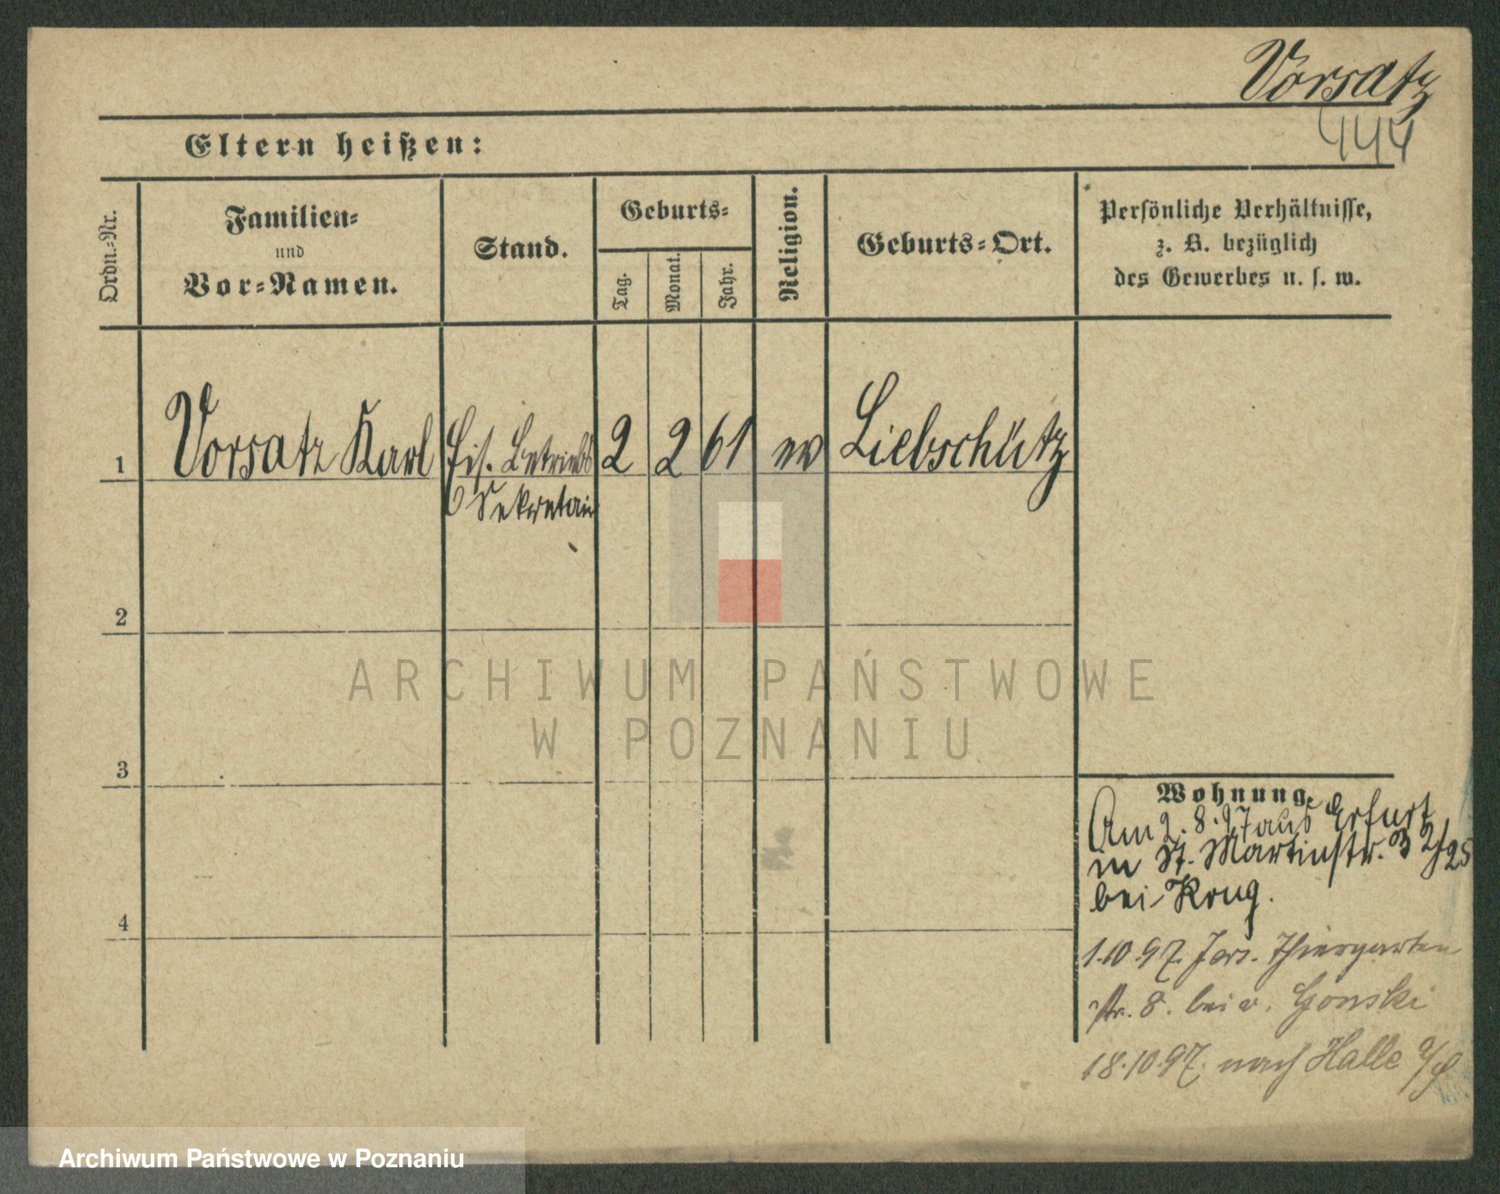 Vorsatz
444
Eltern heißen:
Ordn.-Nr.
Familien-
und
Vor-Namen.
Stand.
Geburts-
Tag.
Monat.
Jahr.
Religion.
Geburts-Ort.
Persönliche Verhältnisse,
z. B. bezüglich
des Gewerbes u. s. w.
1
Vorsatz Karl
Eis. Betriebs
Sekretair
2
2
61
ev
Liebschütz
2
3
4
ARCHIWUM PAŃSTWOWE
W POZNANIU
Wohnung.
Am 2.8.97 aus Erfurt
in St. Martinstr. 3 2/25
bei Krug.
1.10.97. Jers. Thiergarten
str. 8. bei v. Gonski
18.10.97. nach Halle a/S
Archiwum Państwowe w Poznaniu